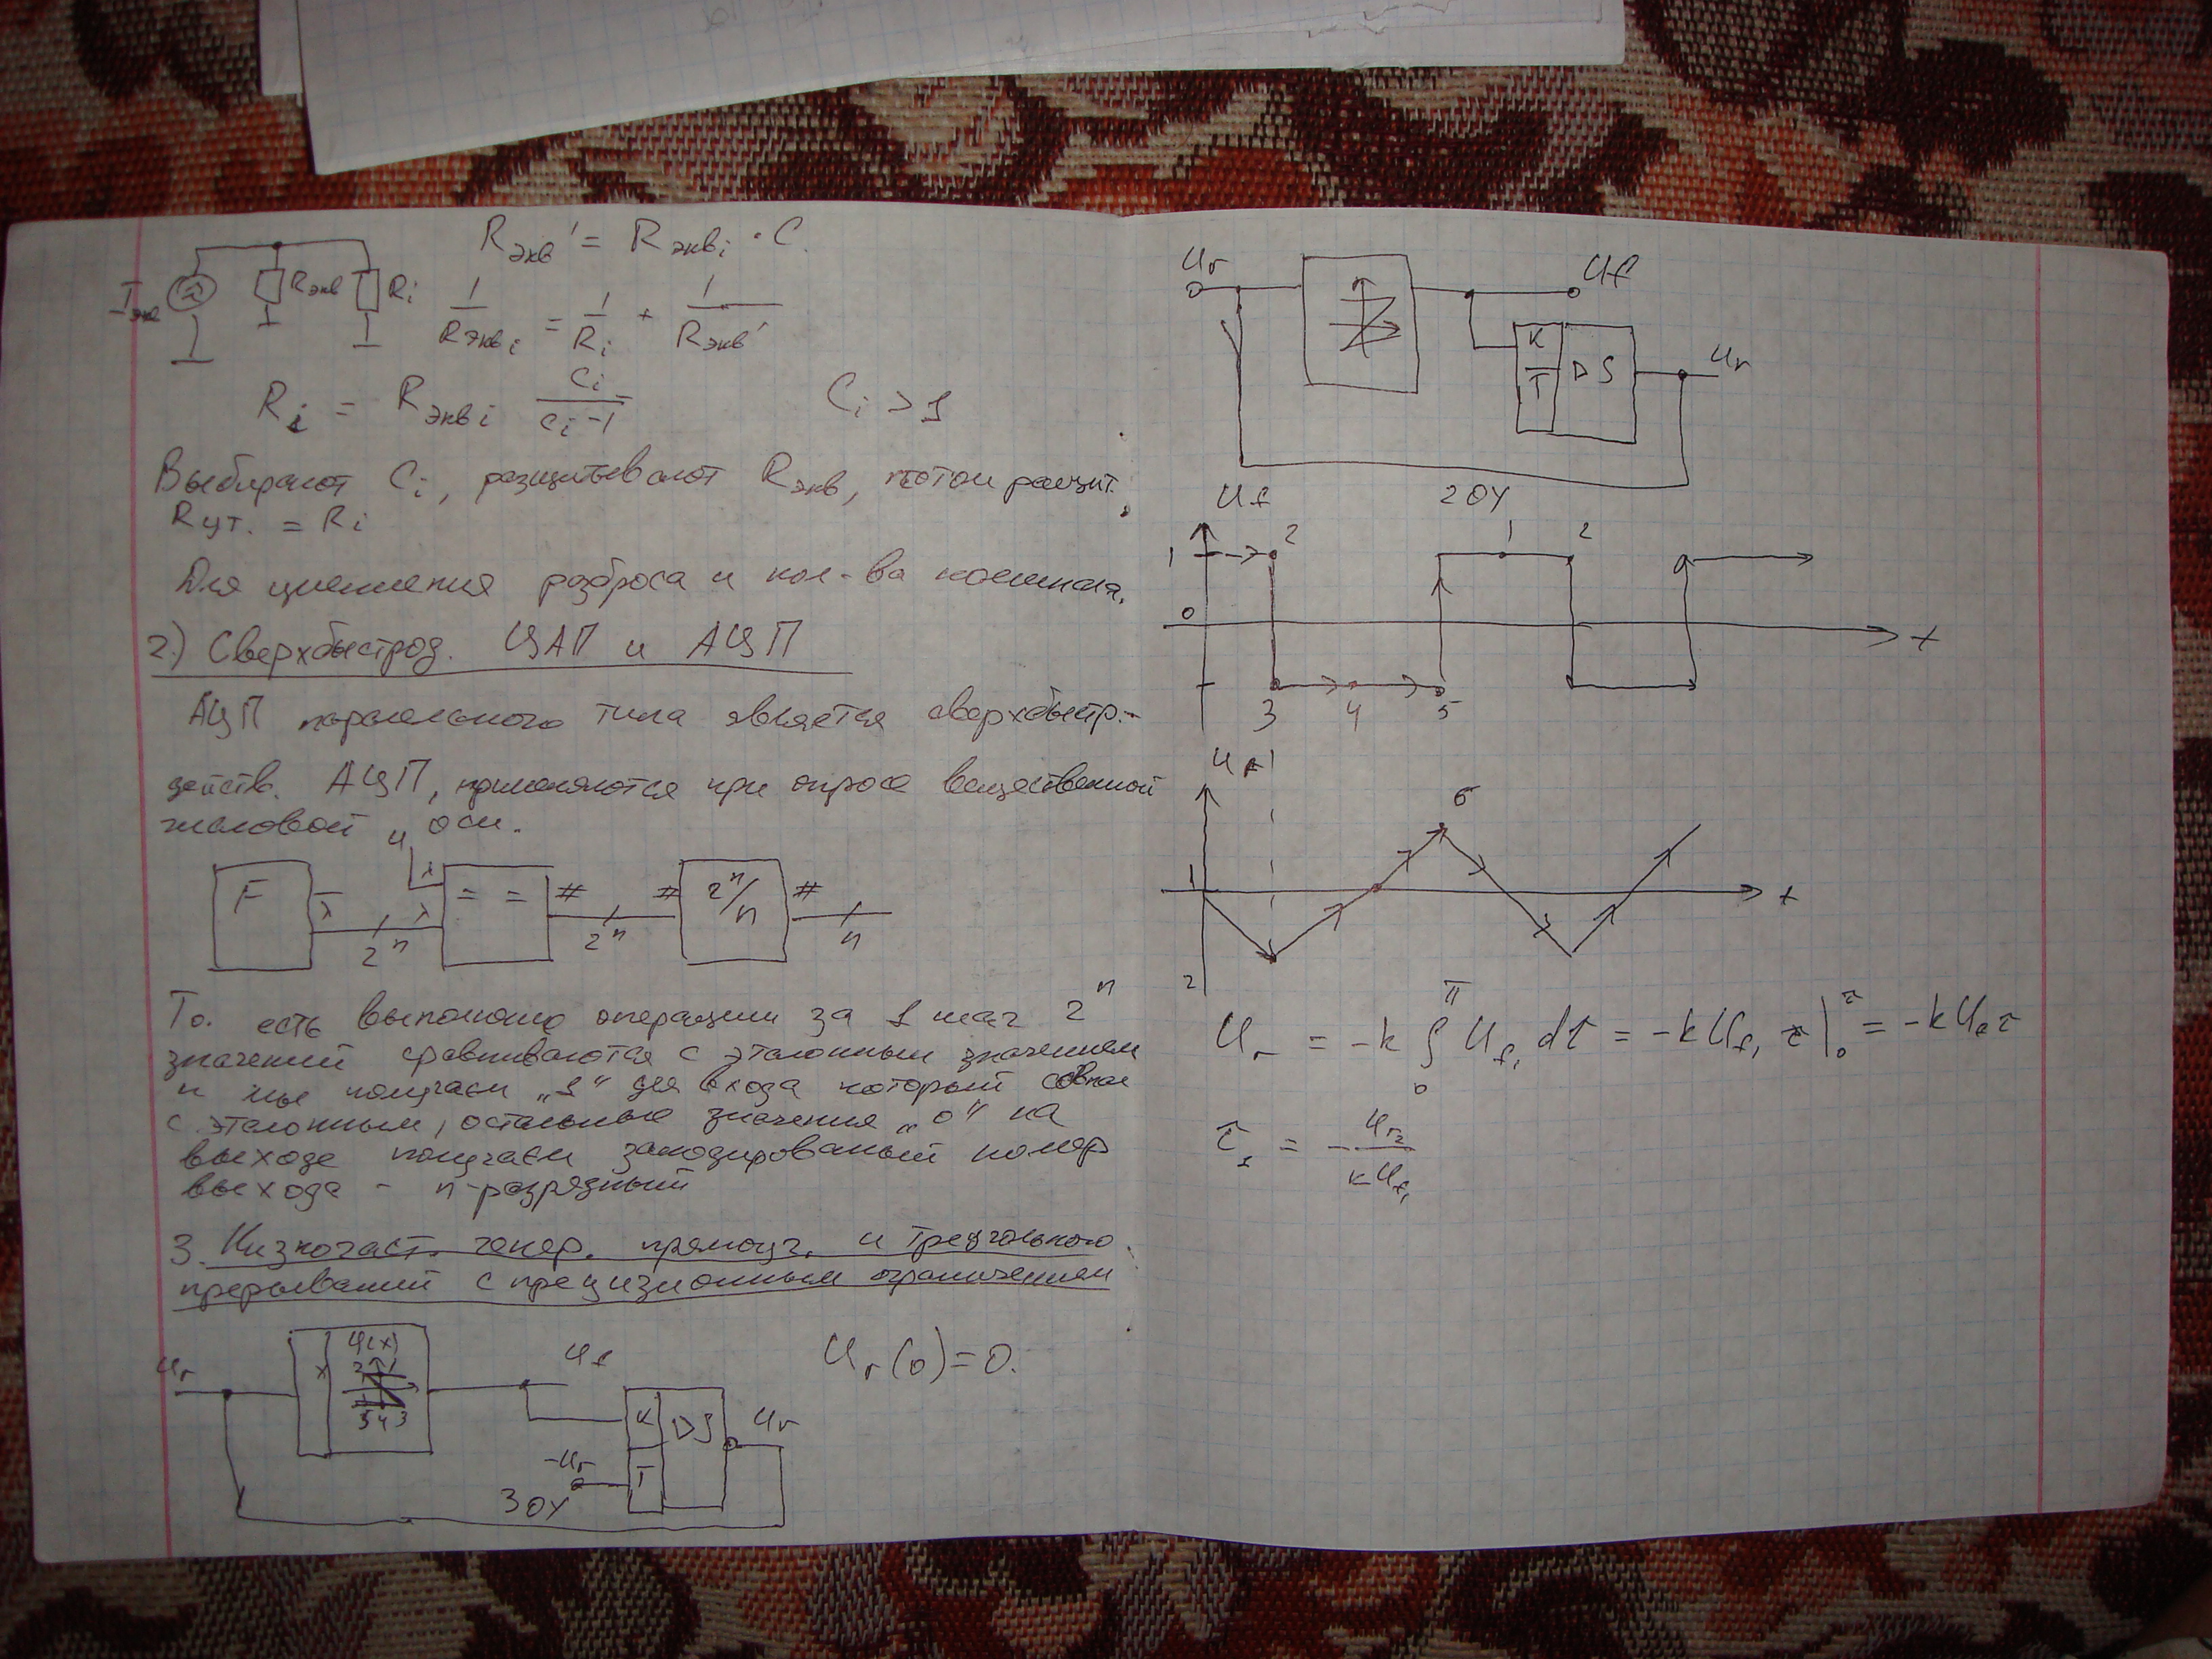 Rэкв' = Rэквi · C.
Iэкв Rэкв Ri
1/Rэквi = 1/Ri + 1/Rэкв'
Ri = Rэквi Ci/(Ci-1) Ci > 1
Выбирают Ci, расщитывают Rэкв, потом расщит.
Rут. = Ri
Для разброса и кол-ва
2.) Сверхбыстрод. ЦАП и АЦП
АЦП паралельного типа является сверхбыстр.-
действ. АЦП, применяются при опросе вещественной
числовой оси.
F λ 2^n λ λ = = # 2^n # 2^n/n # n
То. есть операции за 1 шаг 2^n
значений сравниваются с эталонным значением
и мы получаем „1" для входа который совпал
с эталонным, остальные значения „0" на
выходе получаем закодированый номер
выхода - n-разрядный
3. Низкочаст. генер. прямоуг. и треугольного
с прецизионным ограничением
Ur x φ(x) 2 1 5 4 3 Uf
K DS Ur Ur(0)=0.
-Ur T
3 ОУ
Ur Uf
K T DS Ur
Uf 2 ОУ
1 2 1 2
0 t
3 4 5
Ur
6
1 t
2
Ur = -k ∫ Uf1 dt = -k Uf1 τ |0 τ = -k Uf τ
τ1 = - Ur2/(k Uf1)